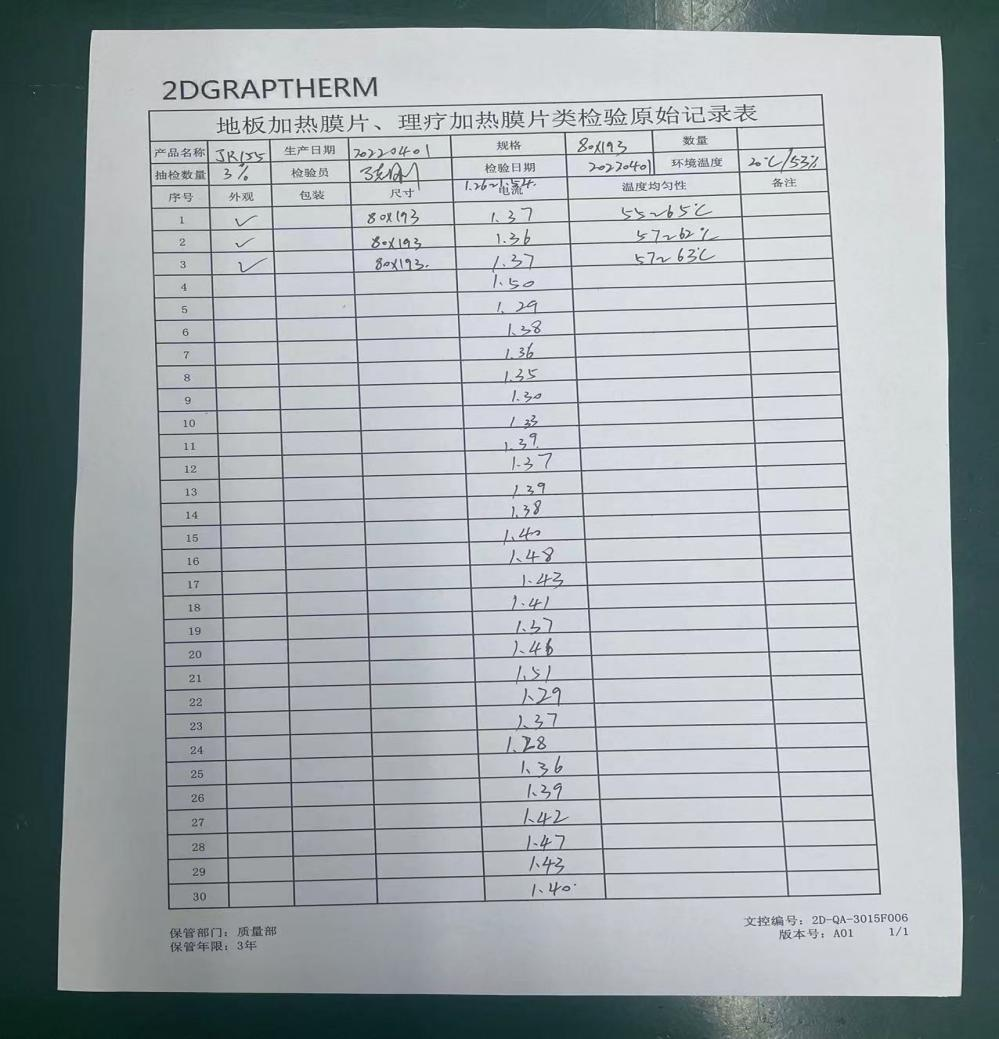 2DGRAPTHERM
地板加热膜片、理疗加热膜片类检验原始记录表
产品名称 JR155 生产日期 20220401 规格 80X193 数量
抽检数量 3% 检验员 检验日期 20220401 环境温度 20℃/53%
序号 外观 包装 尺寸 1.26~1.54. 电流 温度均匀性 备注
1 ✓ 80X193 1.37 55~65℃
2 ✓ 80X193 1.36 57~62℃
3 ✓ 80X193. 1.37 57~63℃
4 1.50
5 1.29
6 1.38
7 1.36
8 1.35
9 1.30
10 1.33
11 1.39
12 1.37
13 1.39
14 1.38
15 1.40
16 1.48
17 1.43
18 1.41
19 1.37
20 1.46
21 1.51
22 1.29
23 1.37
24 1.28
25 1.36
26 1.39
27 1.42
28 1.47
29 1.43
30 1.40
保管部门：质量部 文控编号：2D-QA-3015F006
保管年限：3年 版本号：A01 1/1